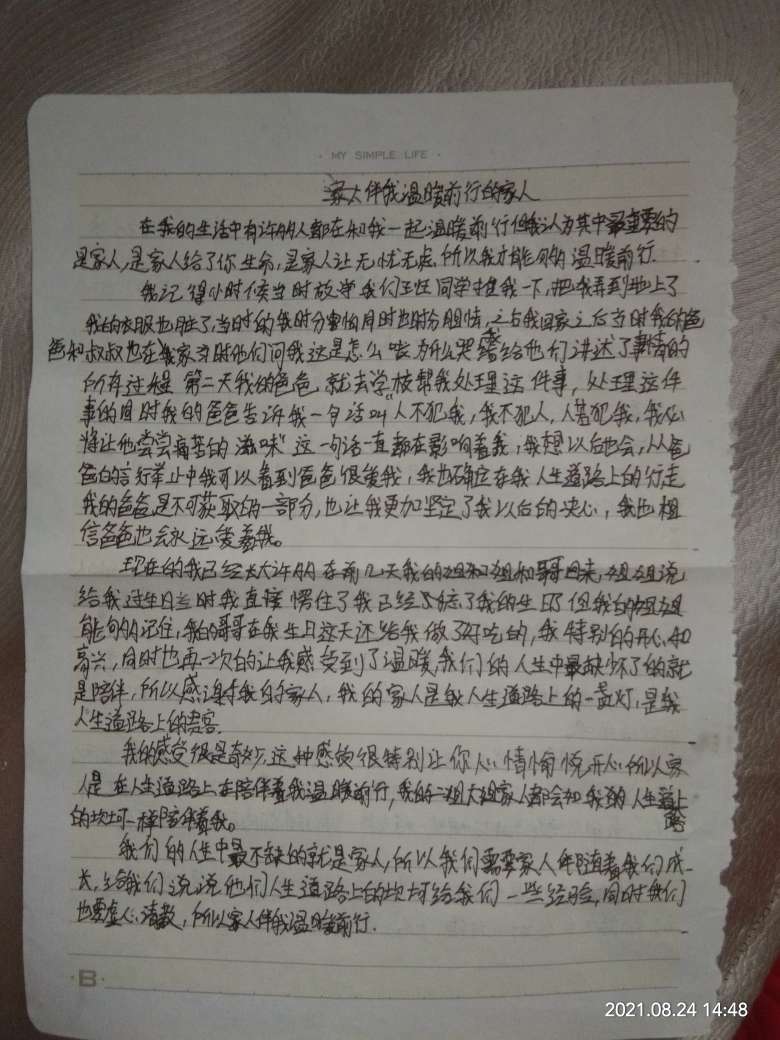 · MY SIMPLE LIFE ·
家人伴我温暖前行的家人
在我的生活中有许多人都在和我一起温暖前行但我认为其中最重要的
是家人,是家人给了你生命,是家人让无忧无虑,所以我才能够的温暖前行.
我记得小时候当时放学我们班同学推我一下,把我弄到地上了
我的衣服也脏了,当时的我时分害怕同时也时分胆怯,之后我回家之后当时我的爸
爸和叔叔也在我家当时他们问我这是怎么啦为什么哭 给他们讲述了事情的
所有过程 第二天我的爸爸 就去学校帮我处理这件事,处理这件
事的同时我的爸爸告诉我一句话叫"人不犯我,我不犯人,人若犯我,我必
将让他尝尝痛苦的滋味"这一句话一直都在影响着我,我想以后也会,从爸
爸的言行举止中我可以看到爸爸很爱我,我也确定在我人生道路上的行走
我的爸爸是不可获取的一部分,也让我更加坚定了我以后的决心,我也相
信爸爸也会永远爱着我。
现在的我已经长大许多在前几天我的姐和姐和哥回来,姐姐说
给我过生日当时我直接愣住了我已经忘了我的生日但我的姐姐
能够的记住,我的哥哥在我生日这天还给我做了好吃的,我特别的开心和
高兴,同时也再一次的让我感受到了温暖,我们的人生中最缺少不了的就
是陪伴,所以感谢我的家人,我的家人是我人生道路上的一盏灯,是我
人生道路上的贵客.
我的感受很是奇妙,这种感觉很特别让你心情愉悦开心所以家
人是在人生道路上在陪伴着我温暖前行,我的二姐大姐家人都会和我的人生道上
路
的坎坷一样陪伴着我。
我们的人生中最不缺的就是家人,所以我们需要家人伴随着我们成
长,给我们说说他们人生道路上的坎坷给我们一些经验,同时我们
也要虚心请教,所以家人伴我温暖前行.
B
2021.08.24 14:48